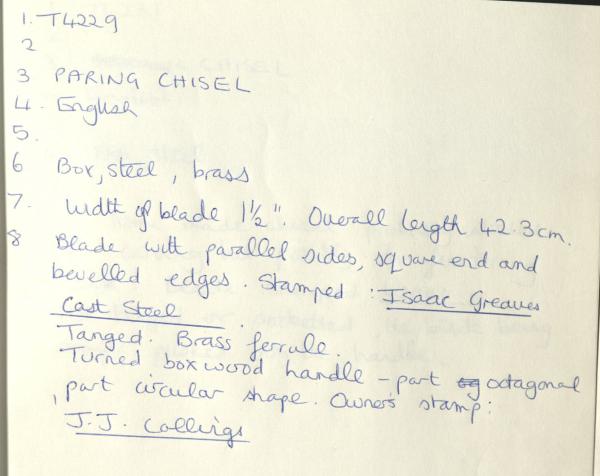 1. T4229
2
3 PARING CHISEL
4. English
5.
6 Box, steel, brass
7. Width of blade 1½". Overall length 42.3cm.
8 Blade with parallel sides, square end and
bevelled edges. Stamped: Isaac Greaves
Cast Steel.
Tanged. Brass ferrule.
Turned boxwood handle - part octagonal
, part circular shape. Owner's stamp:
J.J. Collings